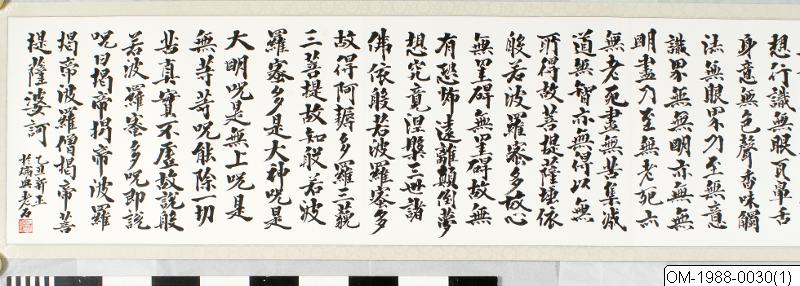 想行識無眼耳鼻舌
身意無色聲香味觸
法無眼界乃至無意
識界無無明亦無無
明盡乃至無老死亦
無老死盡無苦集滅
道無智亦無得以無
所得故菩提薩埵依
般若波羅蜜多故心
無罣礙無罣礙故無
有恐怖遠離顛倒夢
想究竟涅槃三世諸
佛依般若波羅蜜多
故得阿耨多羅三藐
三菩提故知般若波
羅蜜多是大神咒是
大明咒是無上咒是
無等等咒能除一切
苦真實不虛故說般
若波羅蜜多咒即說
咒曰揭帝揭帝波羅
揭帝波羅僧揭帝菩
提薩婆訶
乙丑新正
OM-1988-0030(1)